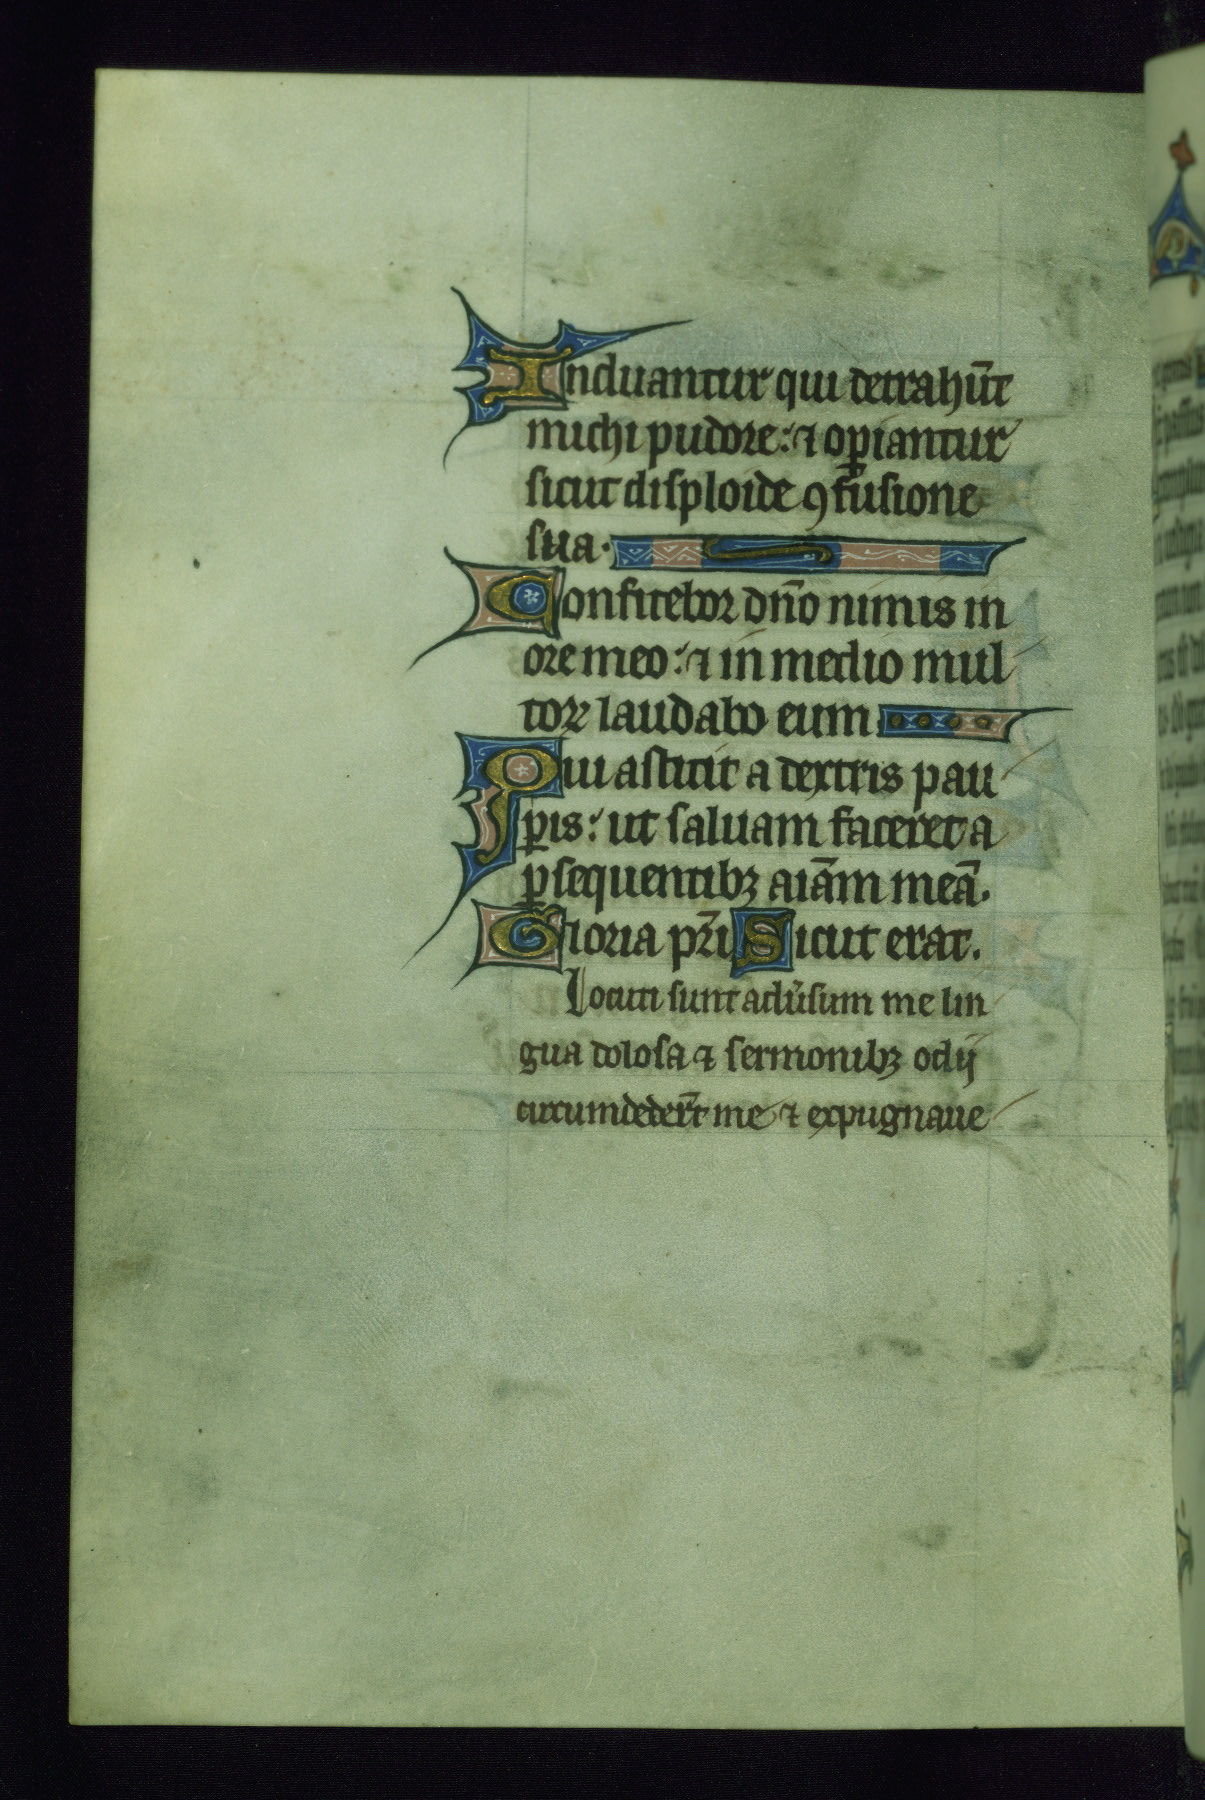 Induantur qui detrahūt
michi pudore: ⁊ oꝑiantur
sicut disploide ꝯfusione
sua.
Confitebor dn̄o nimis in
ore meo: ⁊ in medio mul
toꝝ laudabo eum
Qui astitit a dextris pau
ꝑis: ut saluam faceret a
ꝑsequentibꝫ aīam meā.
Gloria pr̄i Sicut erat.
Locuti sunt adūsum me lin
gua dolosa ⁊ sermonibꝫ odij
circumdeder̄t me ⁊ expugnaue